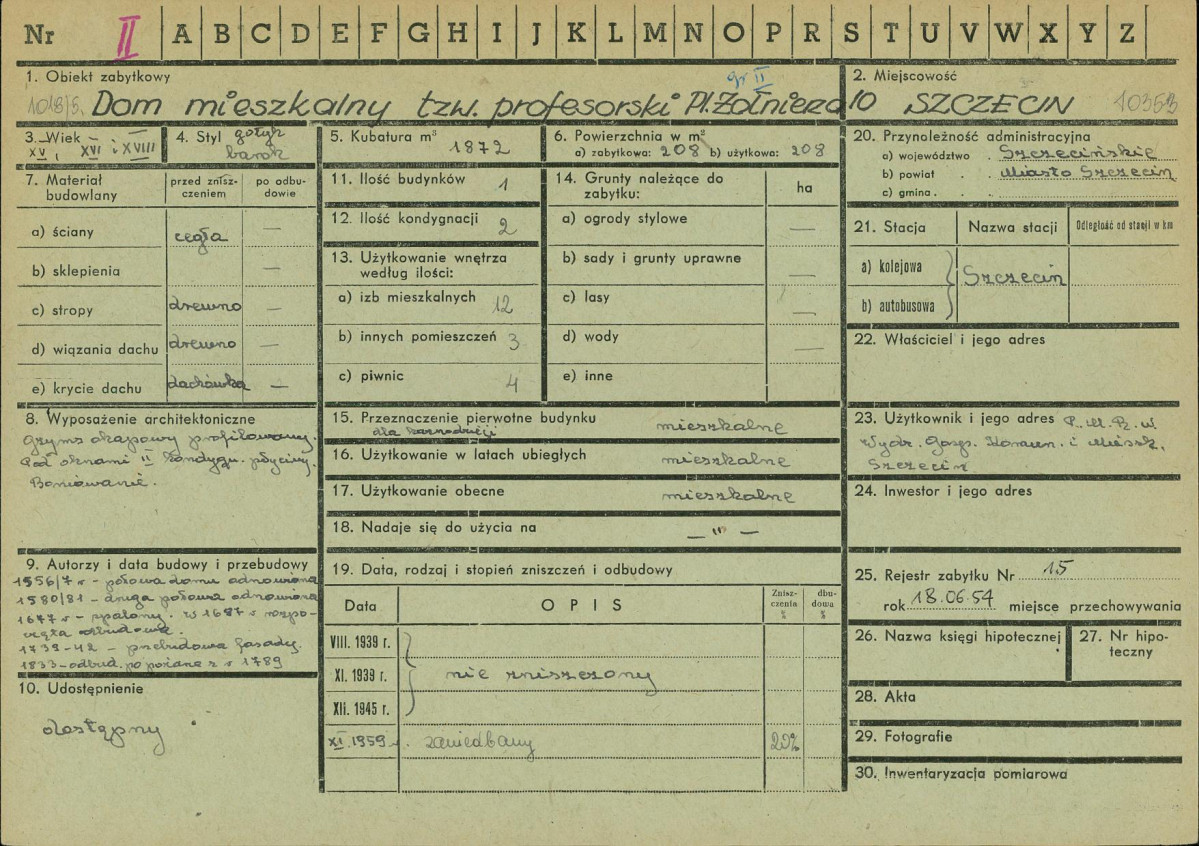 Nr II A B C D E F G H I J K L M N O P R S T U V W X Y Z
1. Obiekt zabytkowy
gr II
1018/5. Dom mieszkalny tzw. profesorski Pl. Żołnierza 10
2. Miejscowość
SZCZECIN 10353
3. Wiek
XV, XVI i XVIII
4. Styl gotyk
barok
5. Kubatura m³
1872
6. Powierzchnia w m²
a) zabytkowa: 208 b) użytkowa: 208
20. Przynoleżność administracyjna
a) województwo . Szczecińskie
b) powiat . . Miasto Szczecin
c) gmina . . .
7. Materiał budowlany
przed znisz-
czeniem
po odbu-
dowie
a) ściany cegła —
b) sklepienia —
c) stropy drewno —
d) wiązania dachu drewno —
e) krycie dachu dachówka —
11. Ilość budynków 1
12. Ilość kondygnacji 2
13. Użytkowanie wnętrza
według ilości:
a) izb mieszkalnych 12
b) innych pomieszczeń 3
c) piwnic 4
14. Grunty należące do
zabytku:
ha
a) ogrody stylowe —
b) sady i grunty uprawne —
c) lasy —
d) wody —
e) inne
21. Stacja Nazwa stacji Odległość od stacji w km
a) kolejowa
Szczecin
b) autobusowa
22. Właściciel i jego adres
8. Wyposażenie architektoniczne
Gzyms okapowy profilowany.
Pod oknami II kondygn. płyciny.
Boniowanie.
15. Przeznaczenie pierwotne budynku mieszkalne
dla kaznodzieji
16. Użytkowanie w latach ubiegłych mieszkalne
17. Użytkowanie obecne mieszkalne
18. Nadaje się do użycia na — " —
23. Użytkownik i jego adres P. M. R. w.
Wydz. Gosp. Komun. i Mieszk.
Szczecin
24. Inwestor i jego adres
9. Autorzy i data budowy i przebudowy
1556/7 r - połowa domu odnowiona
1580/81 - druga połowa odnowiona
1677 r - spalony. w 1687 r rozpo-
częta odbudowa.
1739-42 - przebudowa fasady.
1833 - odbud. po pożarze z r 1789
10. Udostępnienie
dostępny
19. Data, rodzaj i stopień zniszczeń i odbudowy
Data OPIS
Znisz-
czenia
%
dbu-
dowa
%
VIII. 1939 r.
XI. 1939 r. nie zniszczony
XII. 1945 r.
XI. 1959 r. zaniedbany 20%
25. Rejestr zabytku Nr 15
rok 18.06.54 miejsce przechowywania
26. Nazwa księgi hipotecznej
27. Nr hipo-
teczny
28. Akta
29. Fotografie
30. Inwentaryzacja pomiarowa